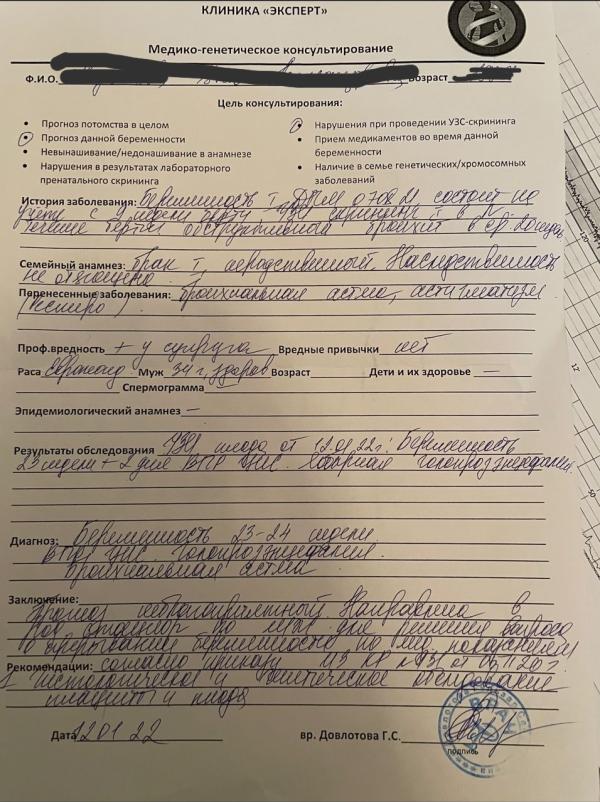 КЛИНИКА «ЭКСПЕРТ»
Медико-генетическое консультирование
Ф.И.О. Возраст
Цель консультирования:
• Прогноз потомства в целом
• Прогноз данной беременности
• Невынашивание/недонашивание в анамнезе
• Нарушения в результатах лабораторного пренатального скрининга
• Нарушения при проведении УЗС-скрининга
• Прием медикаментов во время данной беременности
• Наличие в семье генетических/хромосомных заболеваний
История заболевания: беременность I, ДПМ 07.08.21, состоит на
учете с 9 недели берем. УЗ скрининг I в N.
Течение берем обструктивный бронхит в ср. 20 недель
Семейный анамнез: брак I, неродственный. Наследственность
не отягощена.
Перенесенные заболевания: бронхиальная астма, астигматизм
Проф.вредность + у супруга Вредные привычки нет
Раса Европеоид Муж 34 г, здоров Возраст Дети и их здоровье —
Спермограмма —
Эпидемиологический анамнез —
Результаты обследования УЗИ плода от 12.01.22г: Беременность
23 недели + 2 дня ВПР ЦНС. Лобарная голопрозэнцефалия.
Диагноз: Беременность 23-24 недели.
ВПР ЦНС. Голопрозэнцефалия.
Бронхиальная астма
Заключение:
Прогноз неблагоприятный. Направлена в
для решения вопроса
о прерывании беременности по мед. показаниям
Рекомендации: согласно приказу МЗ
1. Гистологическое и генетическое обследование
плаценты и плода
Дата 12 01 22 вр. Довлотова Г.С.
подпись
ВРАЧ